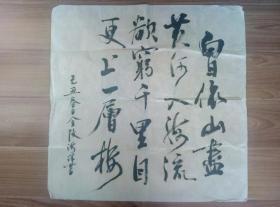 白日依山盡
黄河入海流
欲窮千里目
更上一層樓
己丑春日金陵書